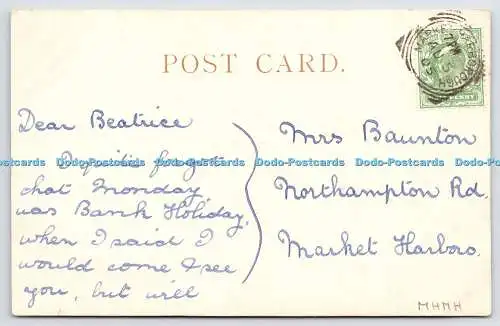 POST CARD.
MARKET HARBOROUGH
Dear Beatrice
I quite forgot
that Monday
was Bank Holiday,
when I said I
would come & see
you, but will
Mrs Baunton
Northampton Rd.
Market Harboro.
MHMH
Dodo-Postcards Dodo-Postcards Dodo-Postcards Dodo-Postcards Dodo-Postcards Dodo-Postcards